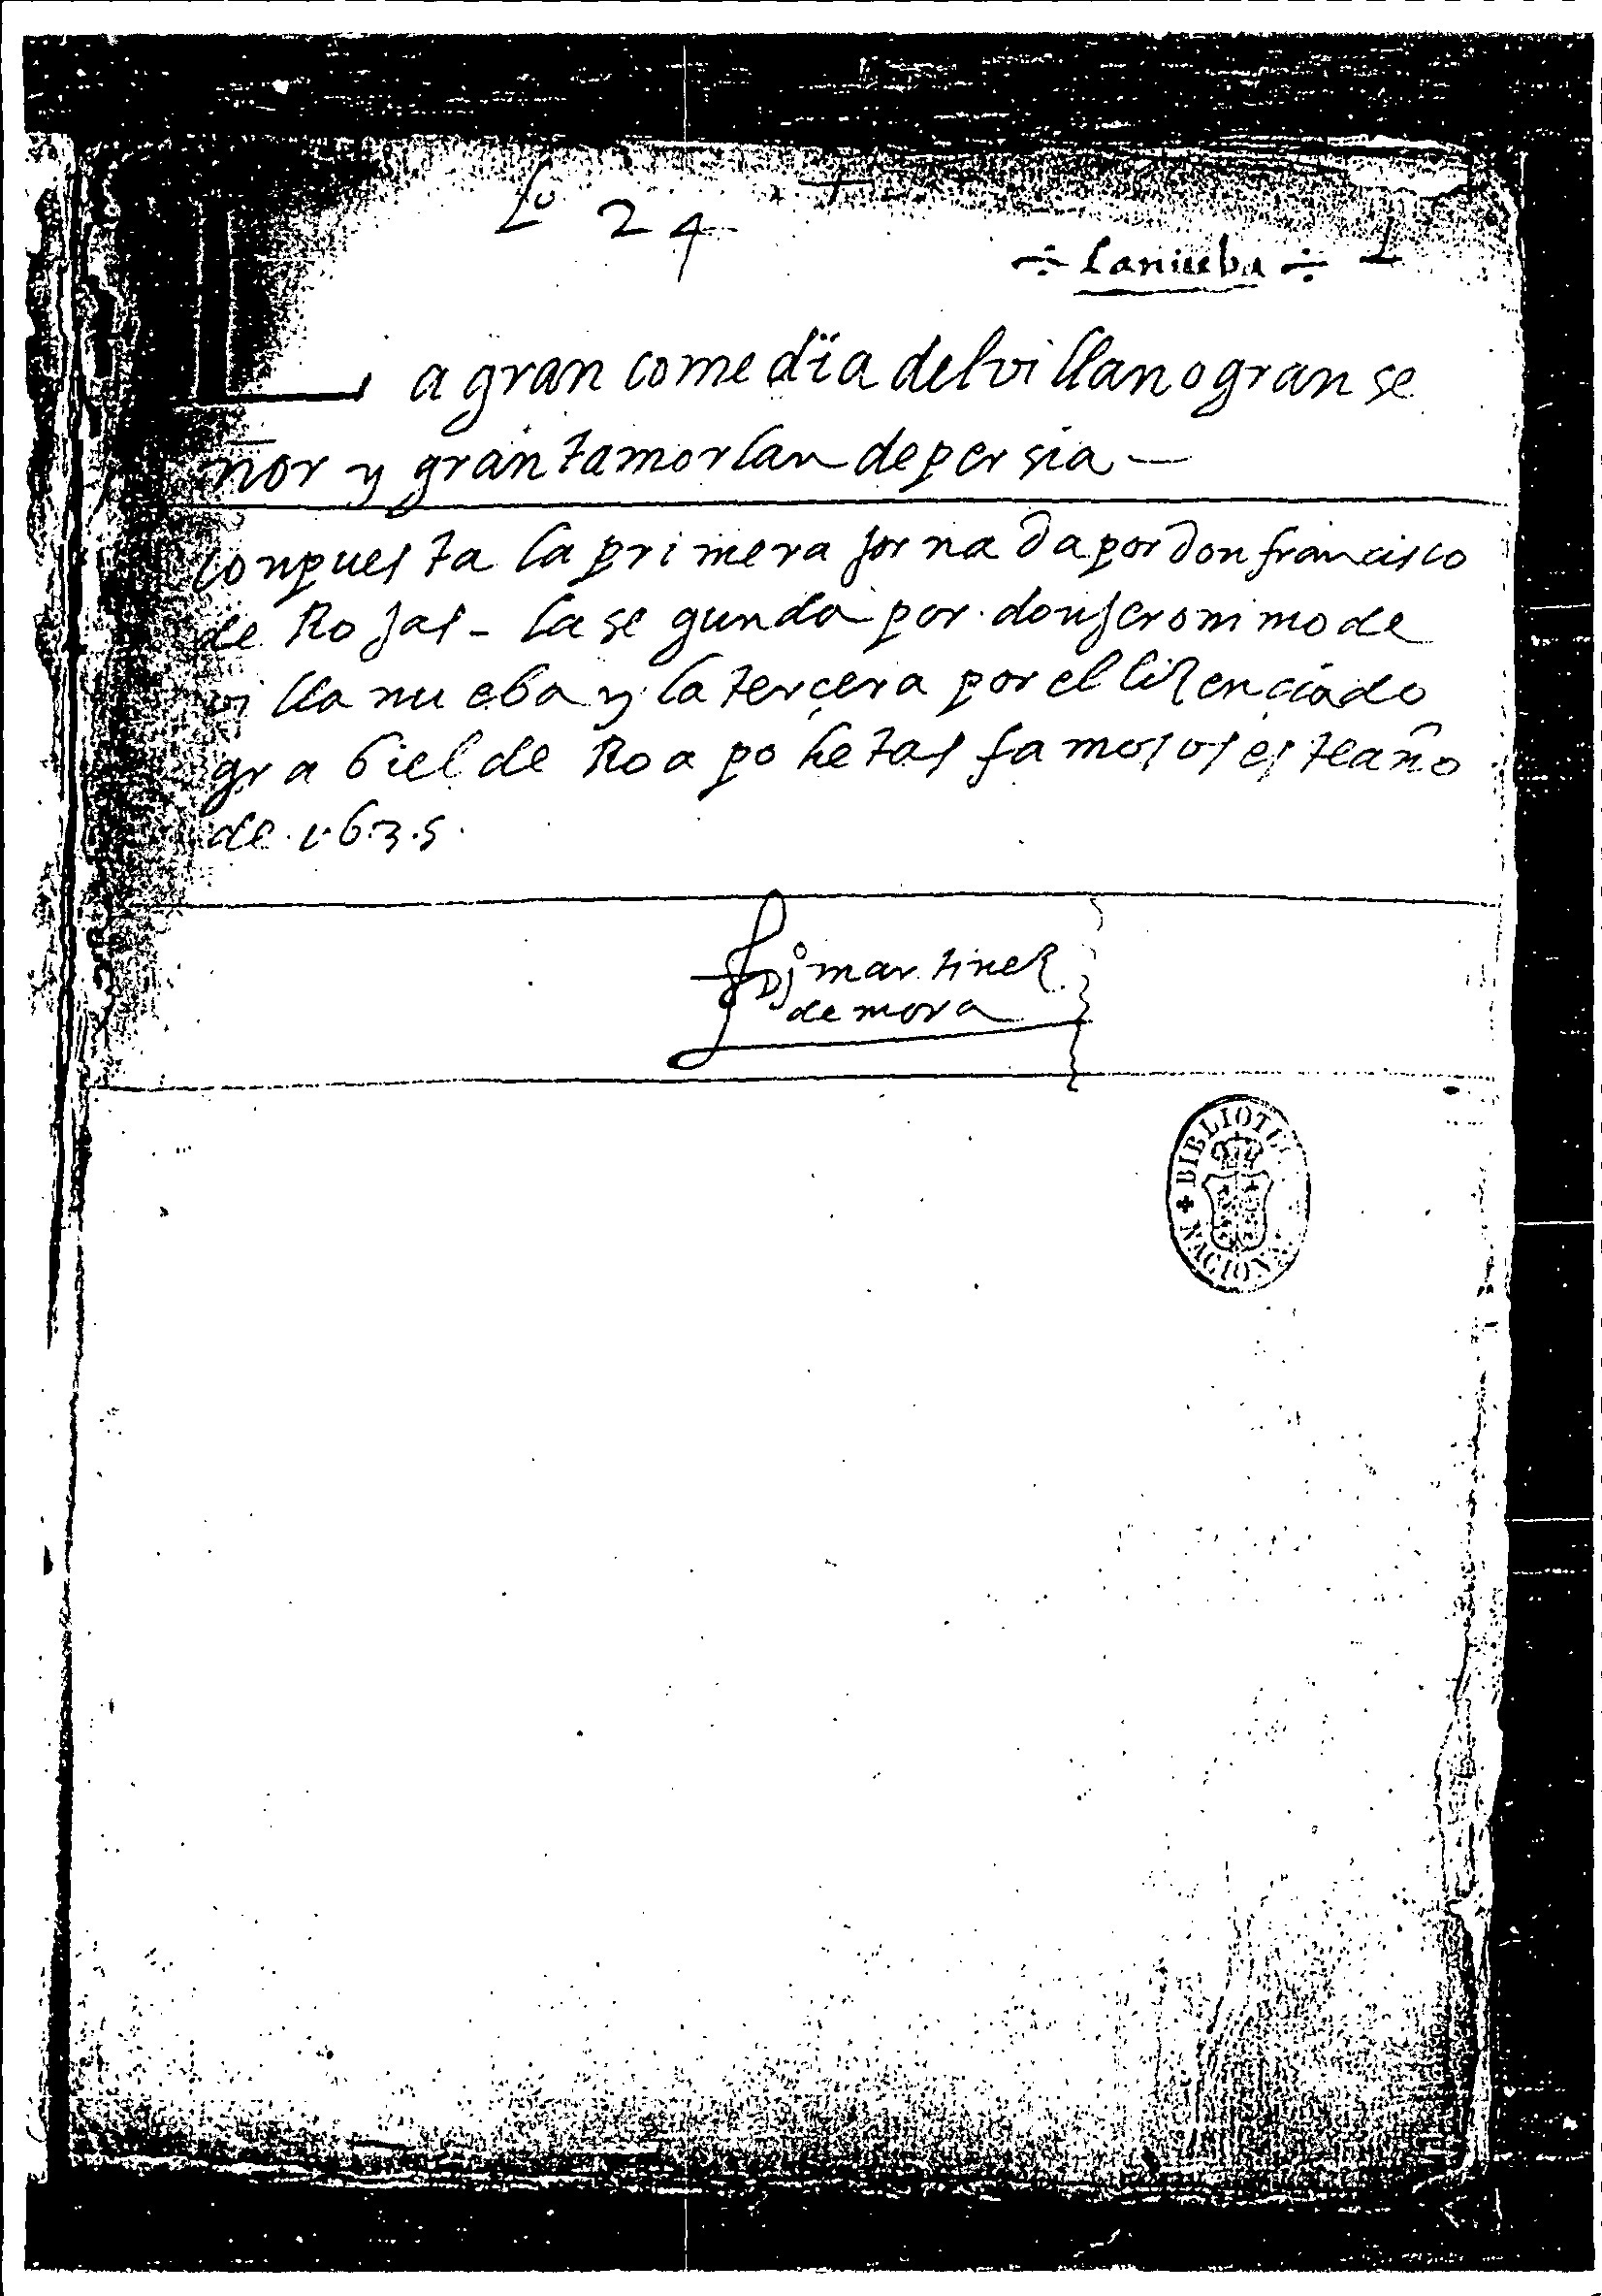 Lo 24
÷ la nueba ÷ 1
La gran comedia del villano gran se
ñor y gran tamorlan de persia —
conpuesta la primera jornada por don francisco
de Rojas - la segunda por don jeronimo de
villanueba y la tercera por el lizenciado
grabiel de Roa pohetas famosos este año
de 1635
martinez
de mora
BIBLIOTECA NACIONAL